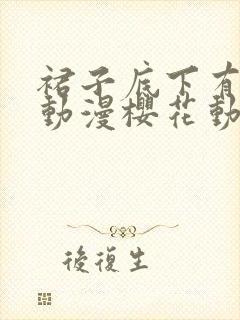 裙子底下有
動漫櫻花動
後復生